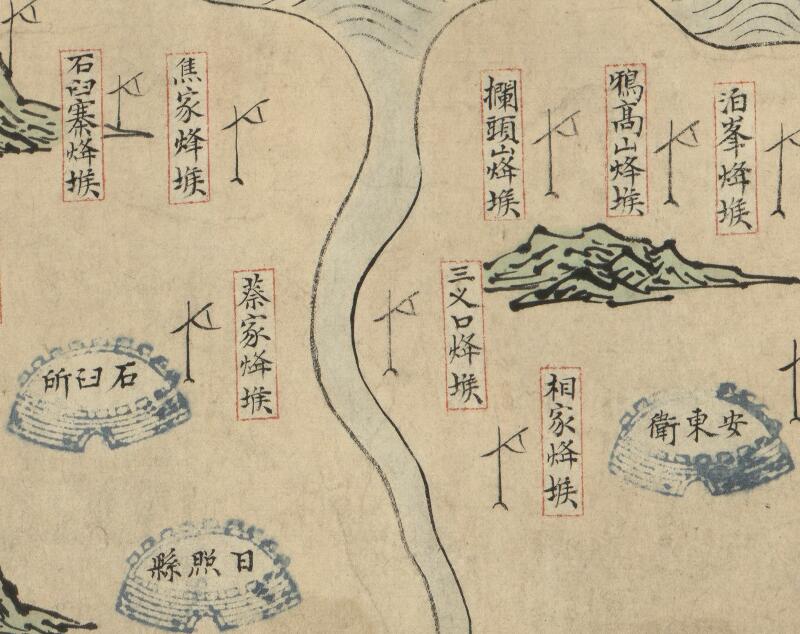 泊峯烽堠
鴉高山烽堠
攔頭山烽堠
焦家烽堠
石臼寨烽堠
三义口烽堠
蔡家烽堠
相家烽堠
安東衛
石臼所
日照縣